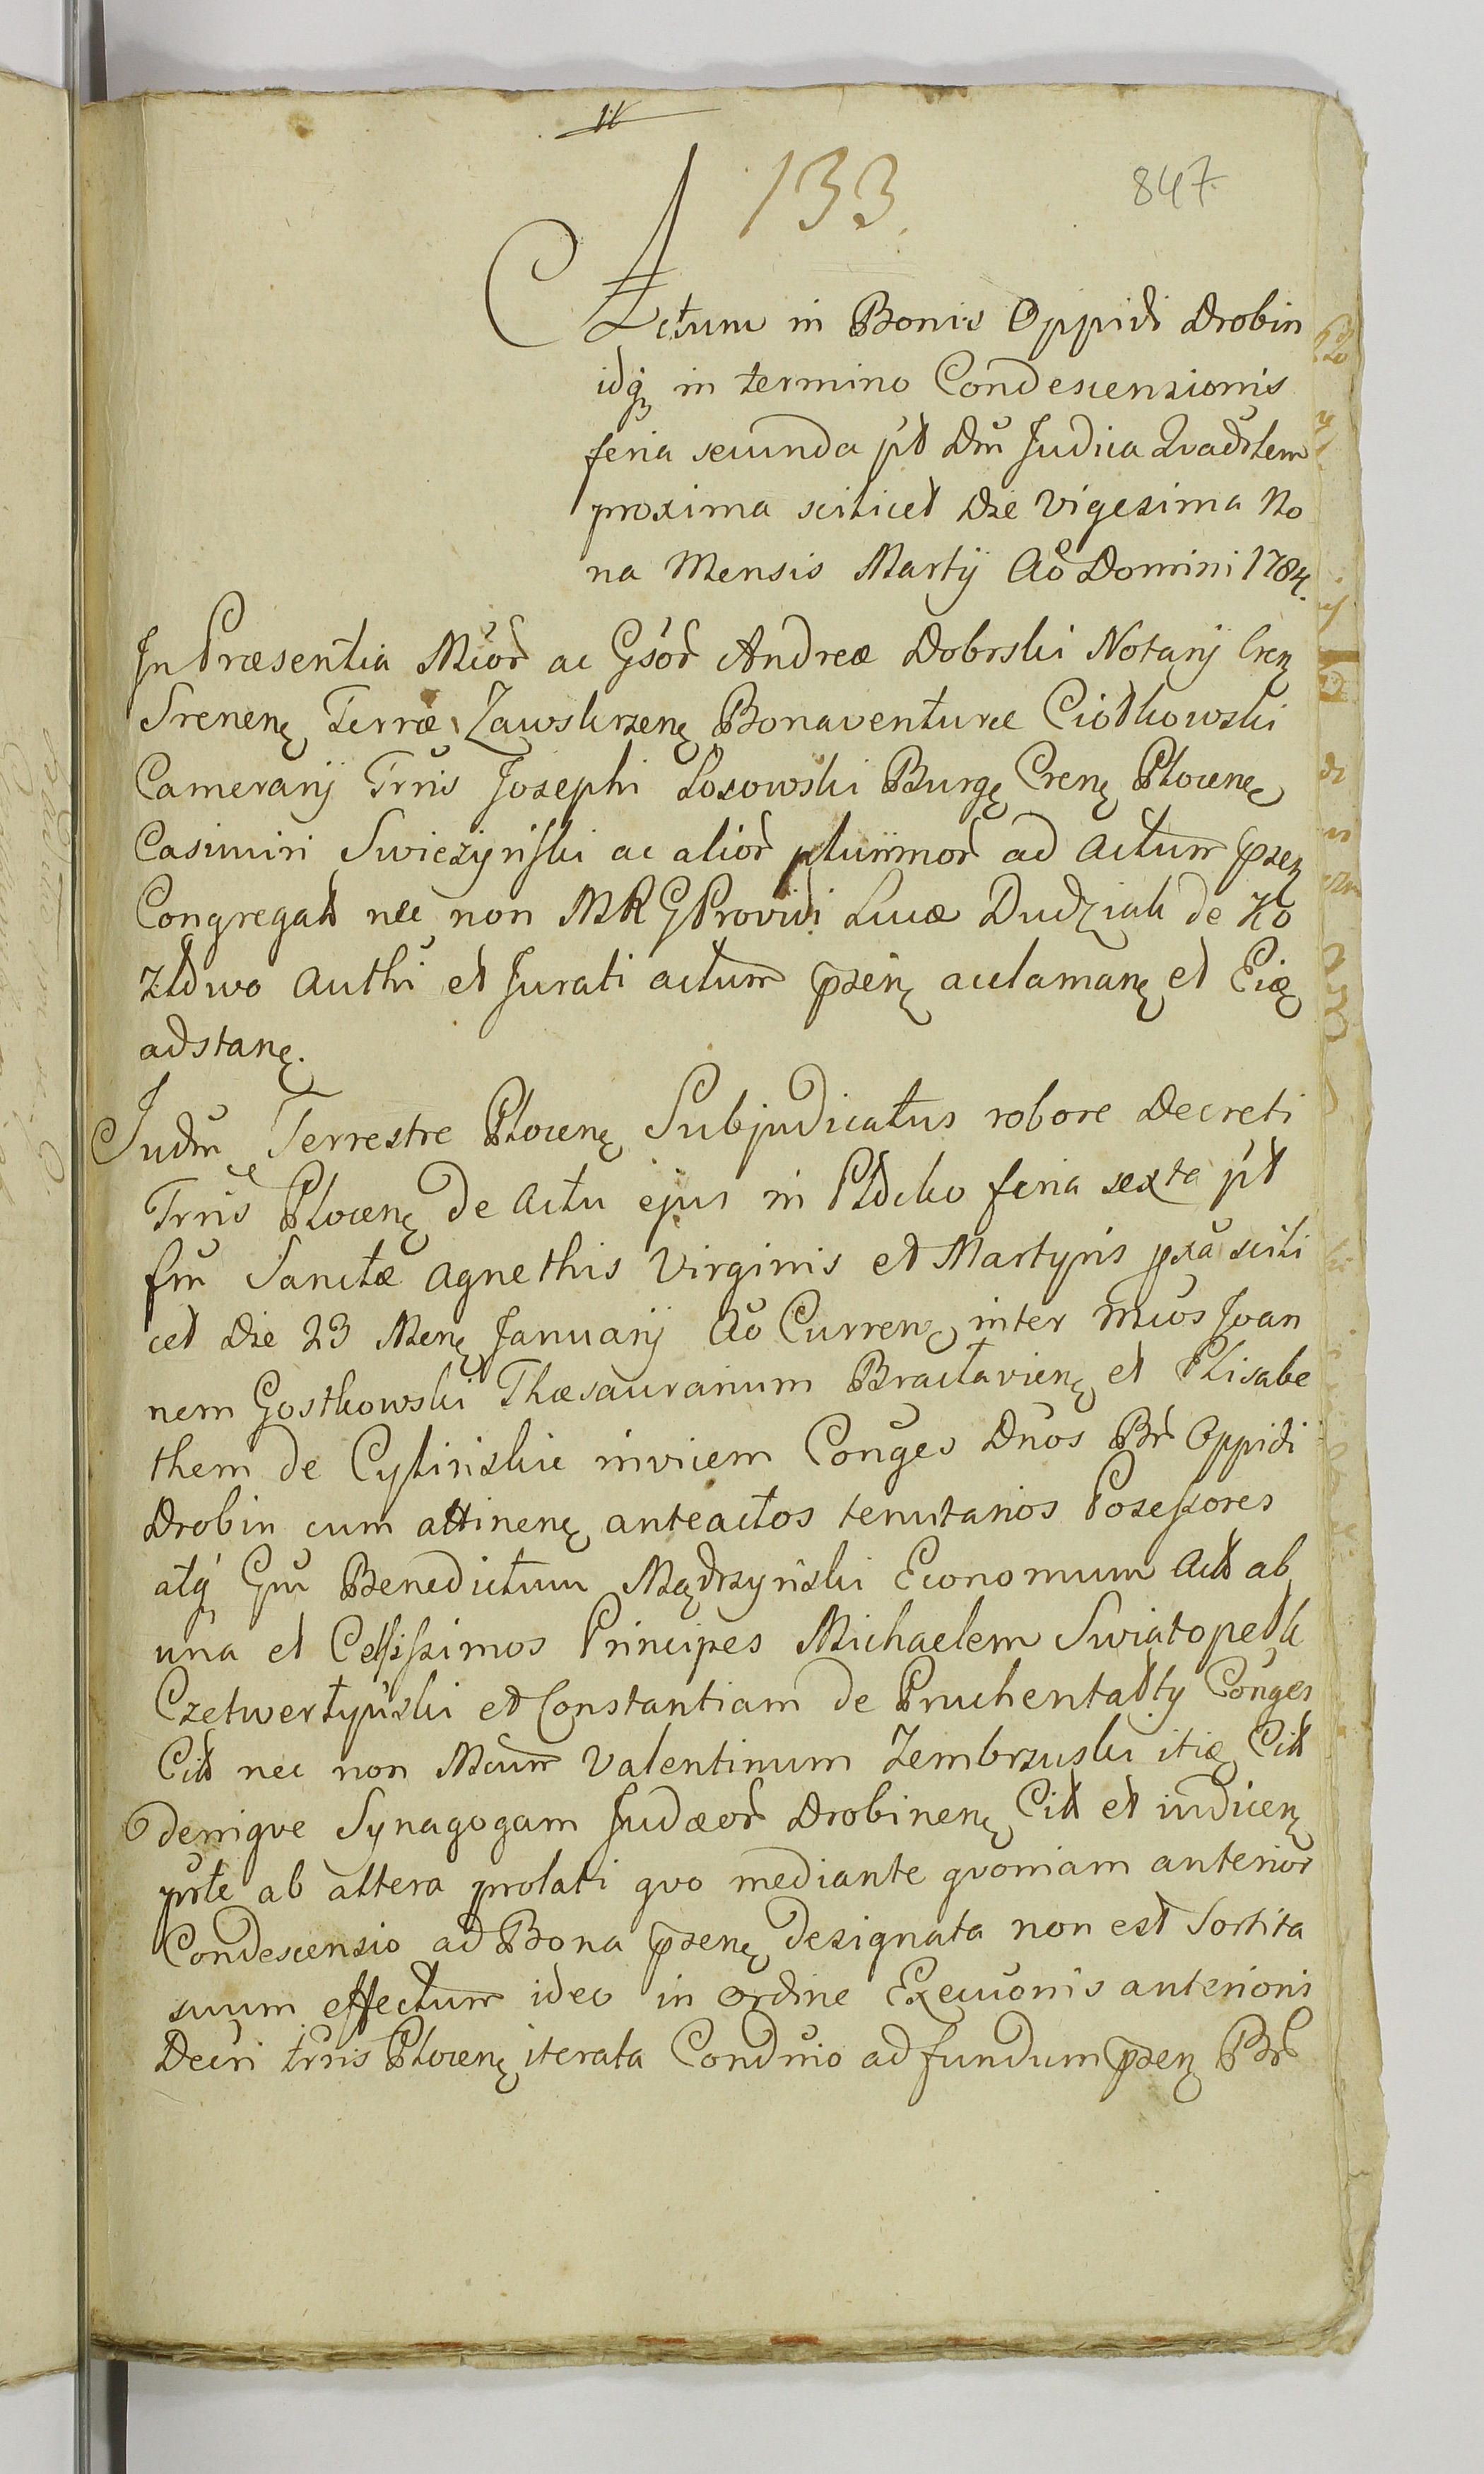 133.
847
Actum in Bonis Oppidi Drobin
idq, in termino Condescensionis
feria secunda pt Dm Judica Qvadrlem
proxima scilicet Die Vigesima No
na Mensis Martij Ao Domini 1784.
In Præsentia Mcor ac Gsor Andreæ Dobrski Notarij Cren
Srenen Terræ Zawskrzen Bonaventuræ Ciołkowski
Camerarij Trris Josephi Łosowski Burg Cren Plocen
Casimiri Swieżyński ac alior plurimor ad Actum psen
Congregat nec non MRG Providi Lucæ Dudziak de Ko
złowo Authi et Jurati actum psen acclaman et Eiæ
adstan.
Judm Terrestre Plocen Subjudicatus robore Decreti
Trris Plocen de Actu ejus in Płocko feria sexta pt
fm Sanctæ Agnethis Virginis et Martyris pxa scili
cet Die 23 Men Januarij Ao Curren inter Mcos Joan
nem Gostkowski Thæsaurarium Bractavien et Elisabe
them de Cylińskie invicem Conges Dnos Br Oppidi
Drobin cum attinen anteactos tenutarios Posessores
atq Gm Benedictum Mądrzyński Economum Act ab
una et Celsissimos Principes Michaelem Swiatopełk
Czetwertyński et Constantiam de Pruchentalły Conges
Cit nec non Mcum Valentinum Zembrzuski itiæ Cit
deniqve Synagogam Judæor Drobinen Cit et indicen
prte ab altera prolati qvo mediante qvoniam anterior
Condescensio ad Bona psen designata non est Sortita
suum effectum ideo in ordine Execuonis anterioris
Decri trris Plocen iterata Condnio ad fundum psen Br